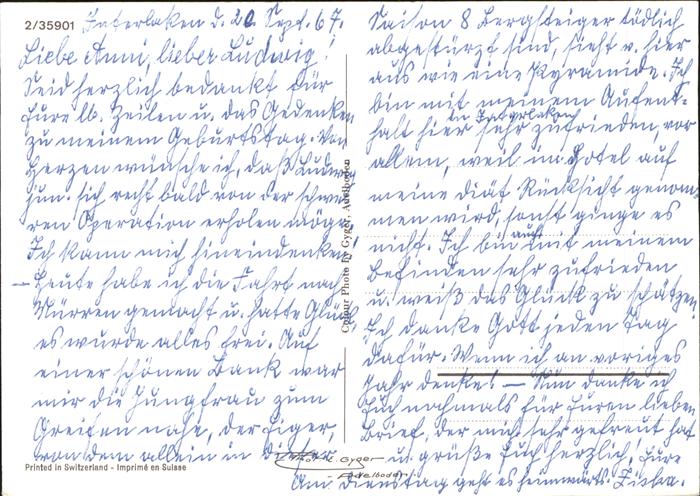 2/35901
Interlaken d. 20. Sept. 67.
Liebe Anni, lieber Ludwig!
Seid herzlich bedankt für
Eure lb. Zeilen u. das Gedenken
zu meinem Geburtstag. Von
Herzen wünsche ich, daß Ludwig
jun. sich recht bald von der schwe-
ren Operation erholen möge.
Ich kann mich hineindenken!
– Heute habe ich die Fahrt nach
Mürren gemacht u. hatte Glück,
es wurde alles frei. Auf
einer schönen Bank war
mir die Jungfrau zum
Greifen nahe, der Eiger,
von dem allein in dieser
Saison 8 Bergsteiger tödlich
abgestürzt sind, sieht v. hier
aus wie eine Pyramide. Ich
bin mit meinem Aufent-
halt hier in Interlaken sehr zufrieden, vor
allem, weil im Hotel auf
meine diät Rücksicht genom-
men wird, sonst ginge es
nicht. Ich bin auch mit meinem
Befinden sehr zufrieden
u. weiß das Glück zu schätzen.
Ich danke Gott jeden Tag
dafür. Wenn ich an voriges
Jahr denke! – Nun danke ich
Euch nochmals für Euren lieben
Brief, der mich sehr gefreut hat
u. grüße Euch herzlich! Eure
Am Dienstag geht es heimwärts.
Colour Photo by Gyger, Adelboden
Printed in Switzerland - Imprimé en Suisse
Gyger
Adelboden